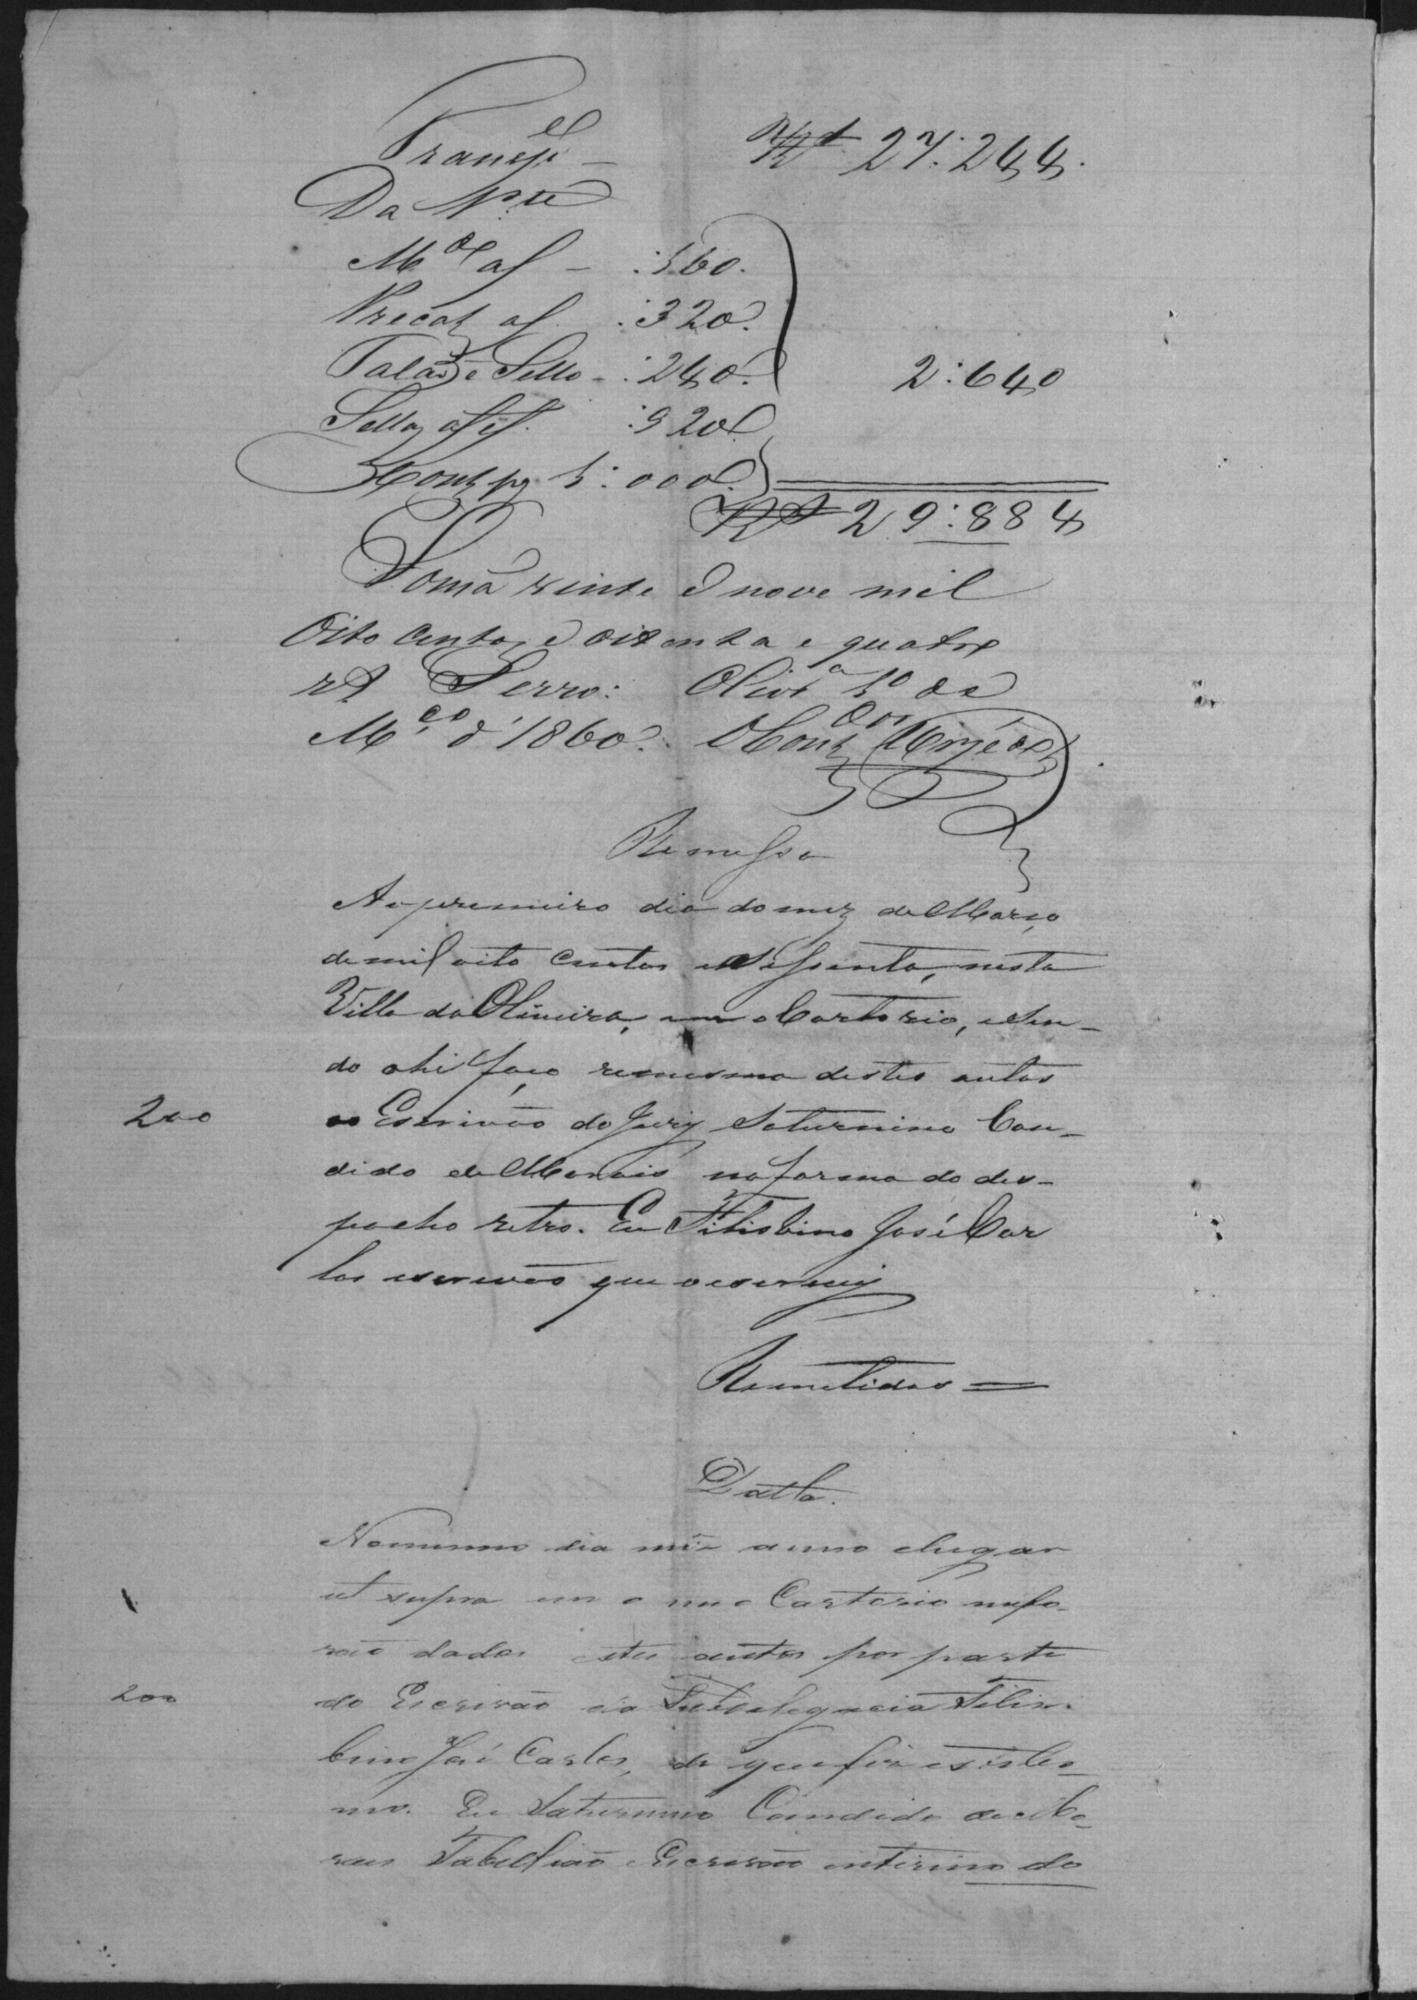 Transpe - R$ 27:244.
Da Pte
Mdo af - :160.
Precat af. :320.
Talão e Sello - :240. 2:640
Sellos af :920
Cont pg 1:000.
R$ 29:884
Soma vinte e nove mil
Oito centos e oitenta e quatro
rs Serro: Olivra 1º de
Mço d'1860.. O Contor
Remessa
Ao premeiro dia do mez de Março
de mil oito centos e sessenta, nesta
Villa da Oliveira, em o Cartorio, e sen-
do ahi faço remessa destes autos
200 ao Escrivão do Jury Saturnino Can-
dido de Morais na forma do des-
pacho retro. Eu Filisbino José Car
los escrivão que o escrevy
Remetidos =
Datta.
No mesmo dia mez anno e lugar
ut supra em o meu Cartorio me fo-
rão dados estes autos por parte
200 do Escrivão da Subdelegacia Filis-
bino José Carlos, de que fiz este ter-
mo. Eu Saturnino Candido de Mo-
rais Tabellião e Escrivão interino do